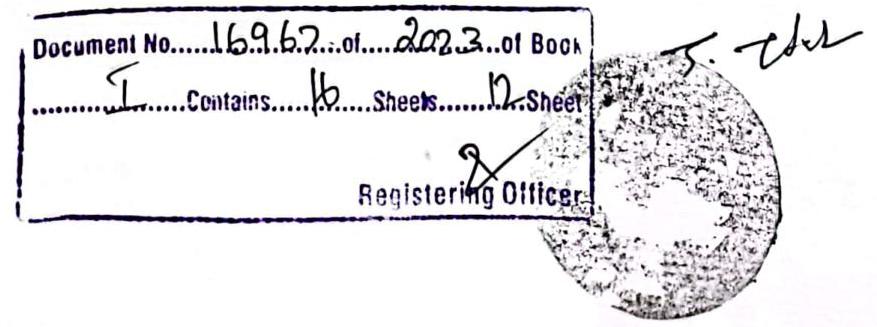 Document No......16967...of.....2023...of Book
............I......Contains.....16.....Sheets.......12.Sheet
Registering Officer